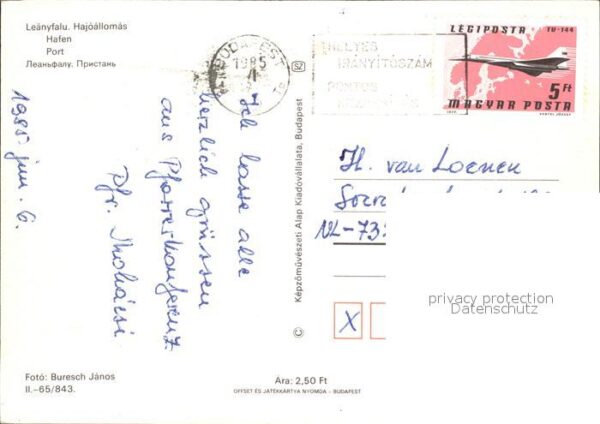 Leányfalu. Hajóállomás
Hafen
Port
Леаньфалу. Пристань
1985. jun. 6.
Ich lasse alle
herzlich grüssen
aus Pfarrerkonferenz.
Pfr. Mohácsi
Fotó: Buresch János
II.–65/843.
Ára: 2,50 Ft
OFFSET ÉS JÁTÉKKÁRTYA NYOMDA – BUDAPEST
© Képzőművészeti Alap Kiadóvállalata, Budapest
SZ
BUDAPEST
1985
HELYES
IRÁNYÍTÓSZÁM
PONTOS
LÉGIPOSTA TU-144
5 Ft
MAGYAR POSTA
H. van Loenen
NL-73
X
privacy protection
Datenschutz